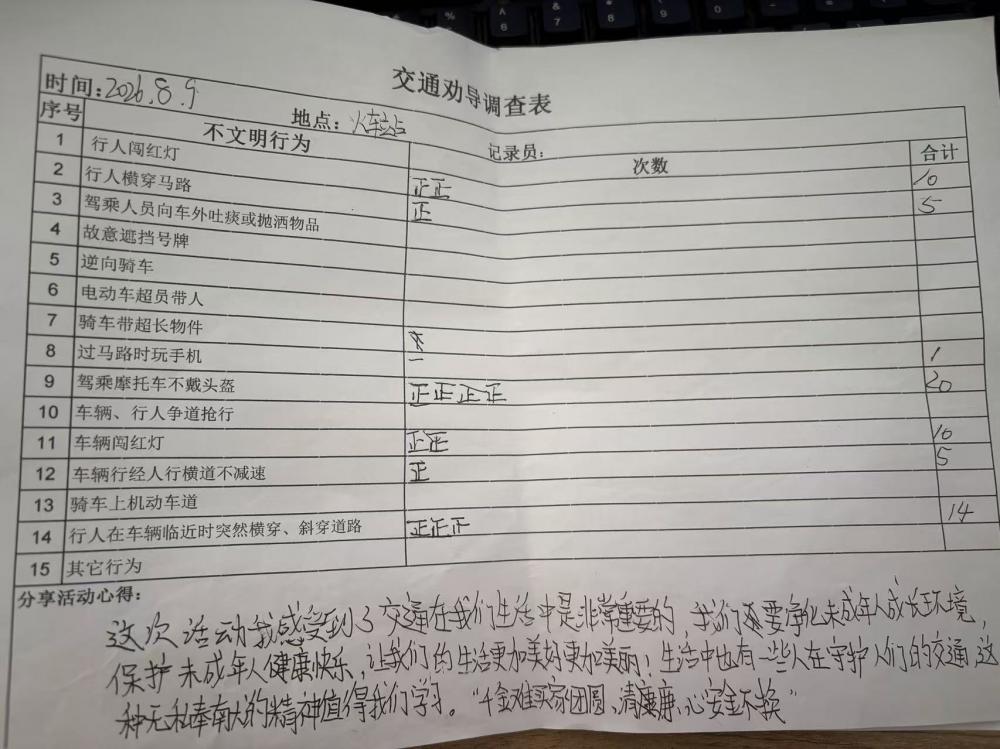 交通劝导调查表
时间:2026.8.9 地点:火车站 记录员:
序号 不文明行为 次数 合计
1 行人闯红灯 正正 10
2 行人横穿马路 正 5
3 驾乘人员向车外吐痰或抛洒物品
4 故意遮挡号牌
5 逆向骑车
6 电动车超员带人
7 骑车带超长物件
8 过马路时玩手机 一 1
9 驾乘摩托车不戴头盔 正正正正 20
10 车辆、行人争道抢行
11 车辆闯红灯 正正 10
12 车辆行经人行横道不减速 正 5
13 骑车上机动车道
14 行人在车辆临近时突然横穿、斜穿道路 正正正 14
15 其它行为
分享活动心得:
这次活动我感受到了交通在我们生活中是非常重要的,我们还要净化未成年人成长环境,
保护未成年人健康快乐,让我们的生活更加美好更加美丽!生活中也有一些人在守护人们的交通,这
种无私奉南大的精神值得我们学习。“千金难买家团圆,清廉廉心安金不换”